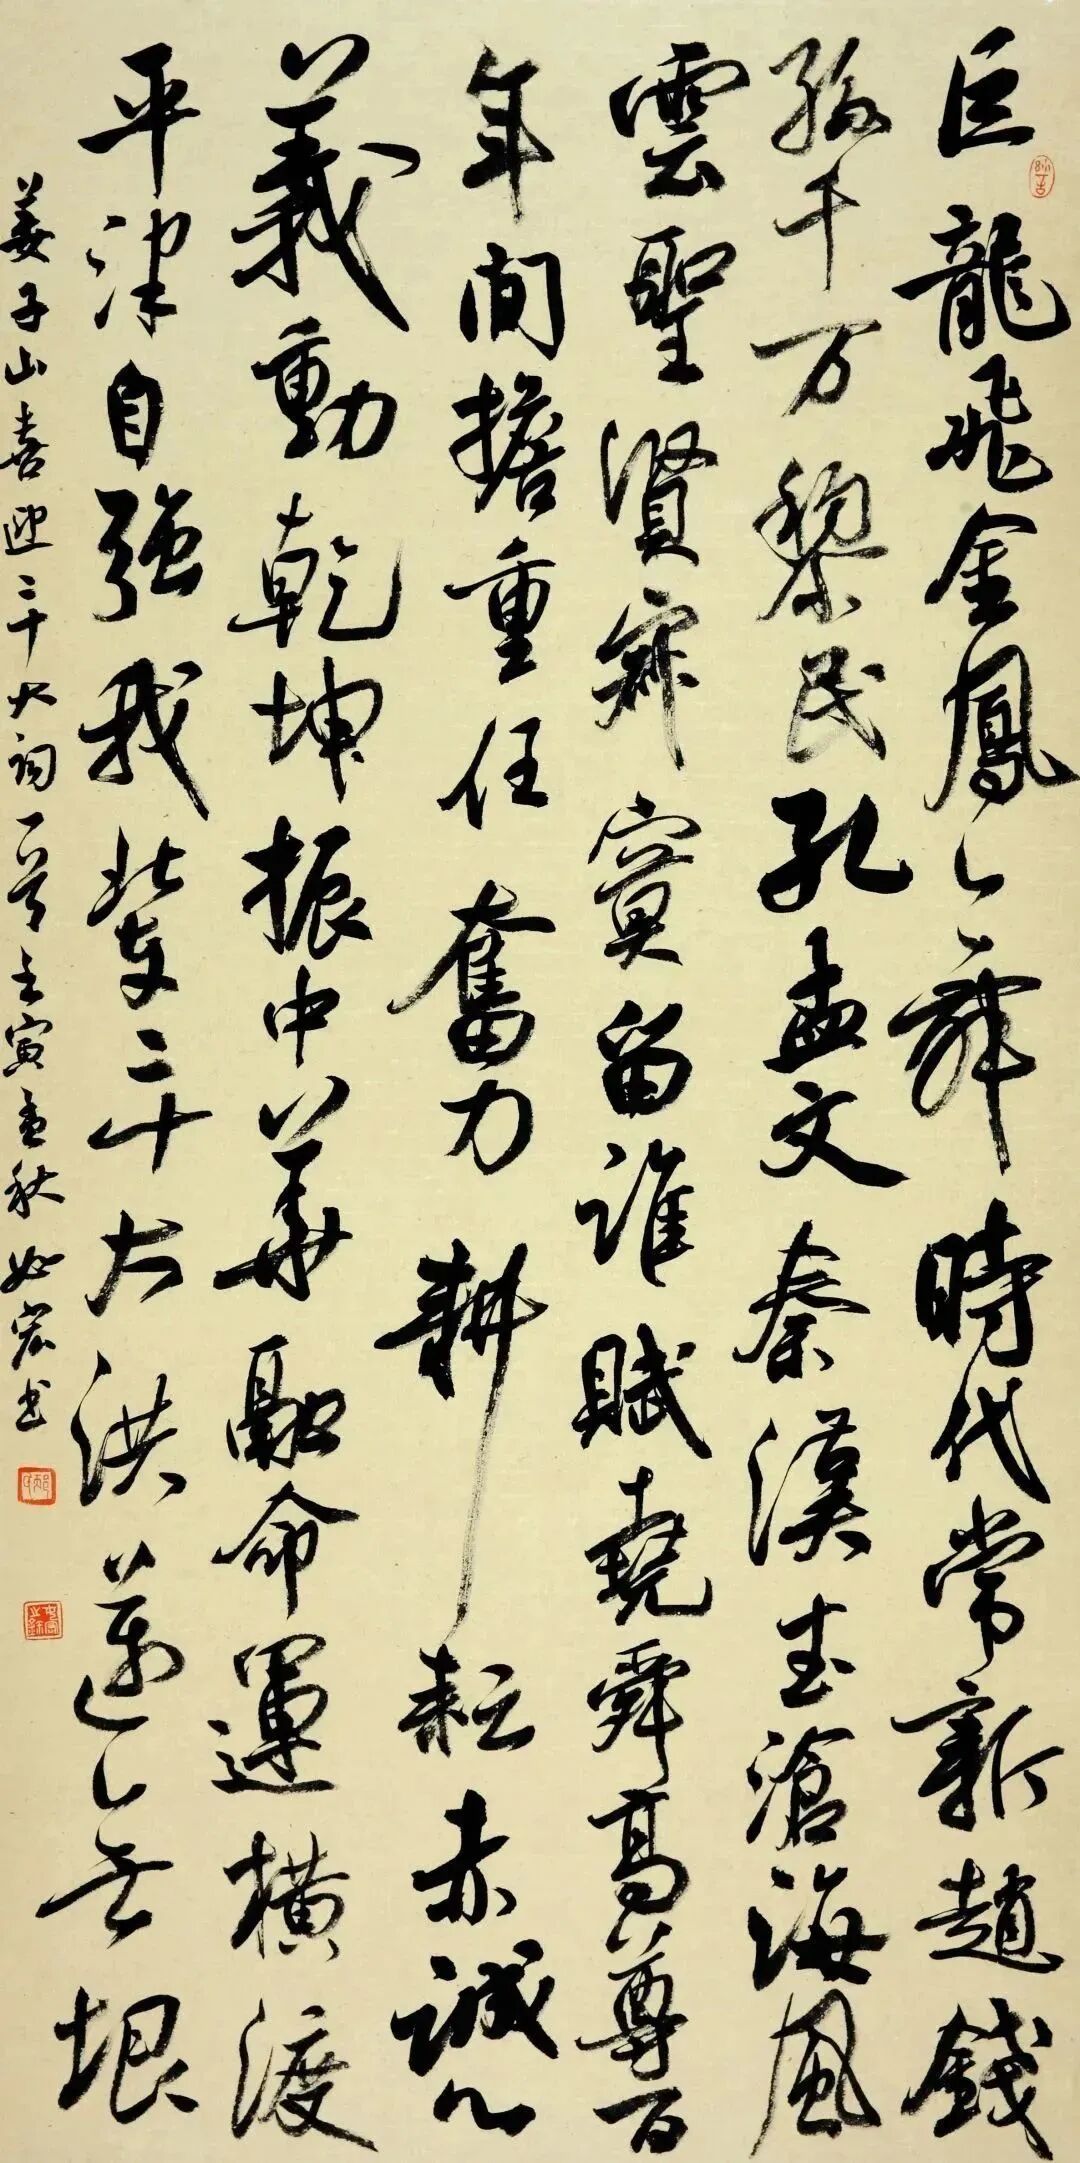 巨龍飛金鳳〻舞時代常新趙錢
孫千万黎民孔孟文秦漢武滄海風
雲聖賢寂寞留誰賦堯舜高尊百
年间擔重任奮力耕耘赤誠心
義動乾坤振中華融命運橫渡
平津自強我輩二十大洪〻無垠
姜子山喜迎二十大詞一首壬寅孟秋如书